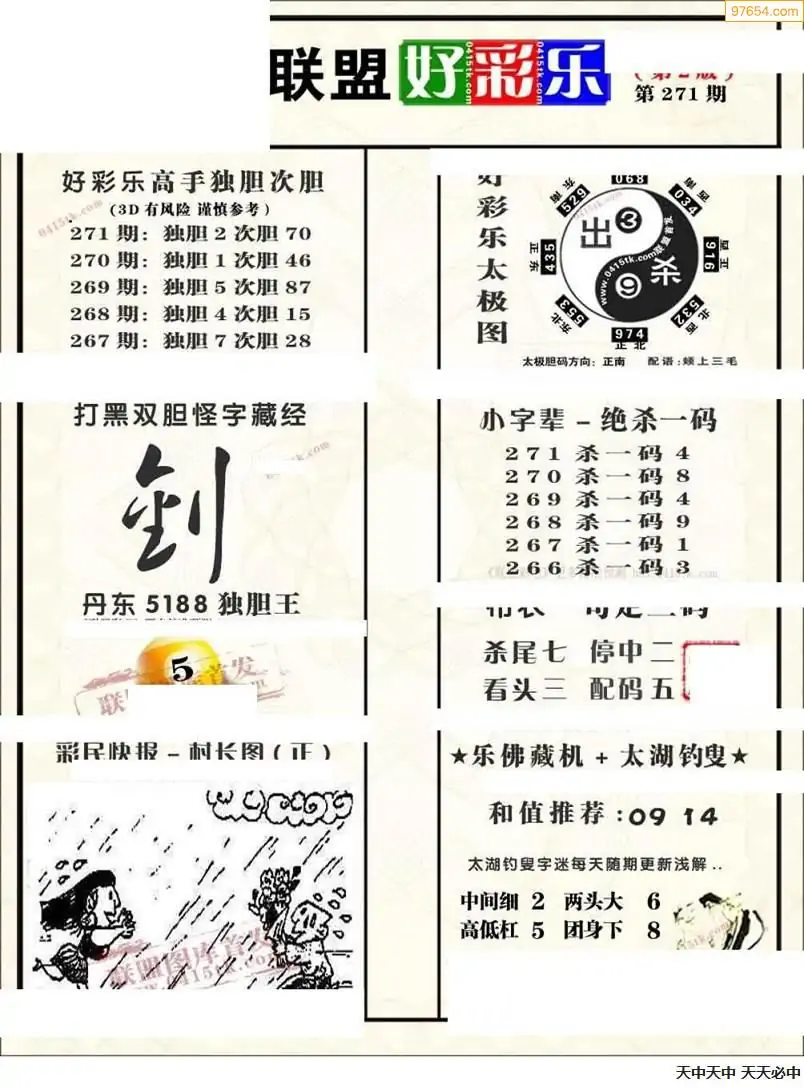 97654.com
联盟 好彩乐
第 271 期
好彩乐高手独胆次胆
(3D 有风险 谨慎参考)
271 期: 独胆 2 次胆 70
270 期: 独胆 1 次胆 46
269 期: 独胆 5 次胆 87
268 期: 独胆 4 次胆 15
267 期: 独胆 7 次胆 28
好彩乐太极图
068
东南 529
034 西南
正东 435
916 西正
出 3
杀 9
www.0415tk.com联盟首发
东北 553
532 西北
974
正北
太极胆码方向: 正南 配语: 颊上三毛
打黑双胆怪字藏经
丹东 5188 独胆王
5
小字辈 - 绝杀一码
271 杀一码 4
270 杀一码 8
269 杀一码 4
268 杀一码 9
267 杀一码 1
266 杀一码 3
杀尾七 停中二
看头三 配码五
彩民快报 - 村长图 (正)
联盟图库首发
0415tk.com
★乐佛藏机 + 太湖钓叟★
和值推荐 :09 14
太湖钓叟字迷每天随期更新浅解 ..
中间细 2 两头大 6
高低杠 5 团身下 8
天中天中 天天必中